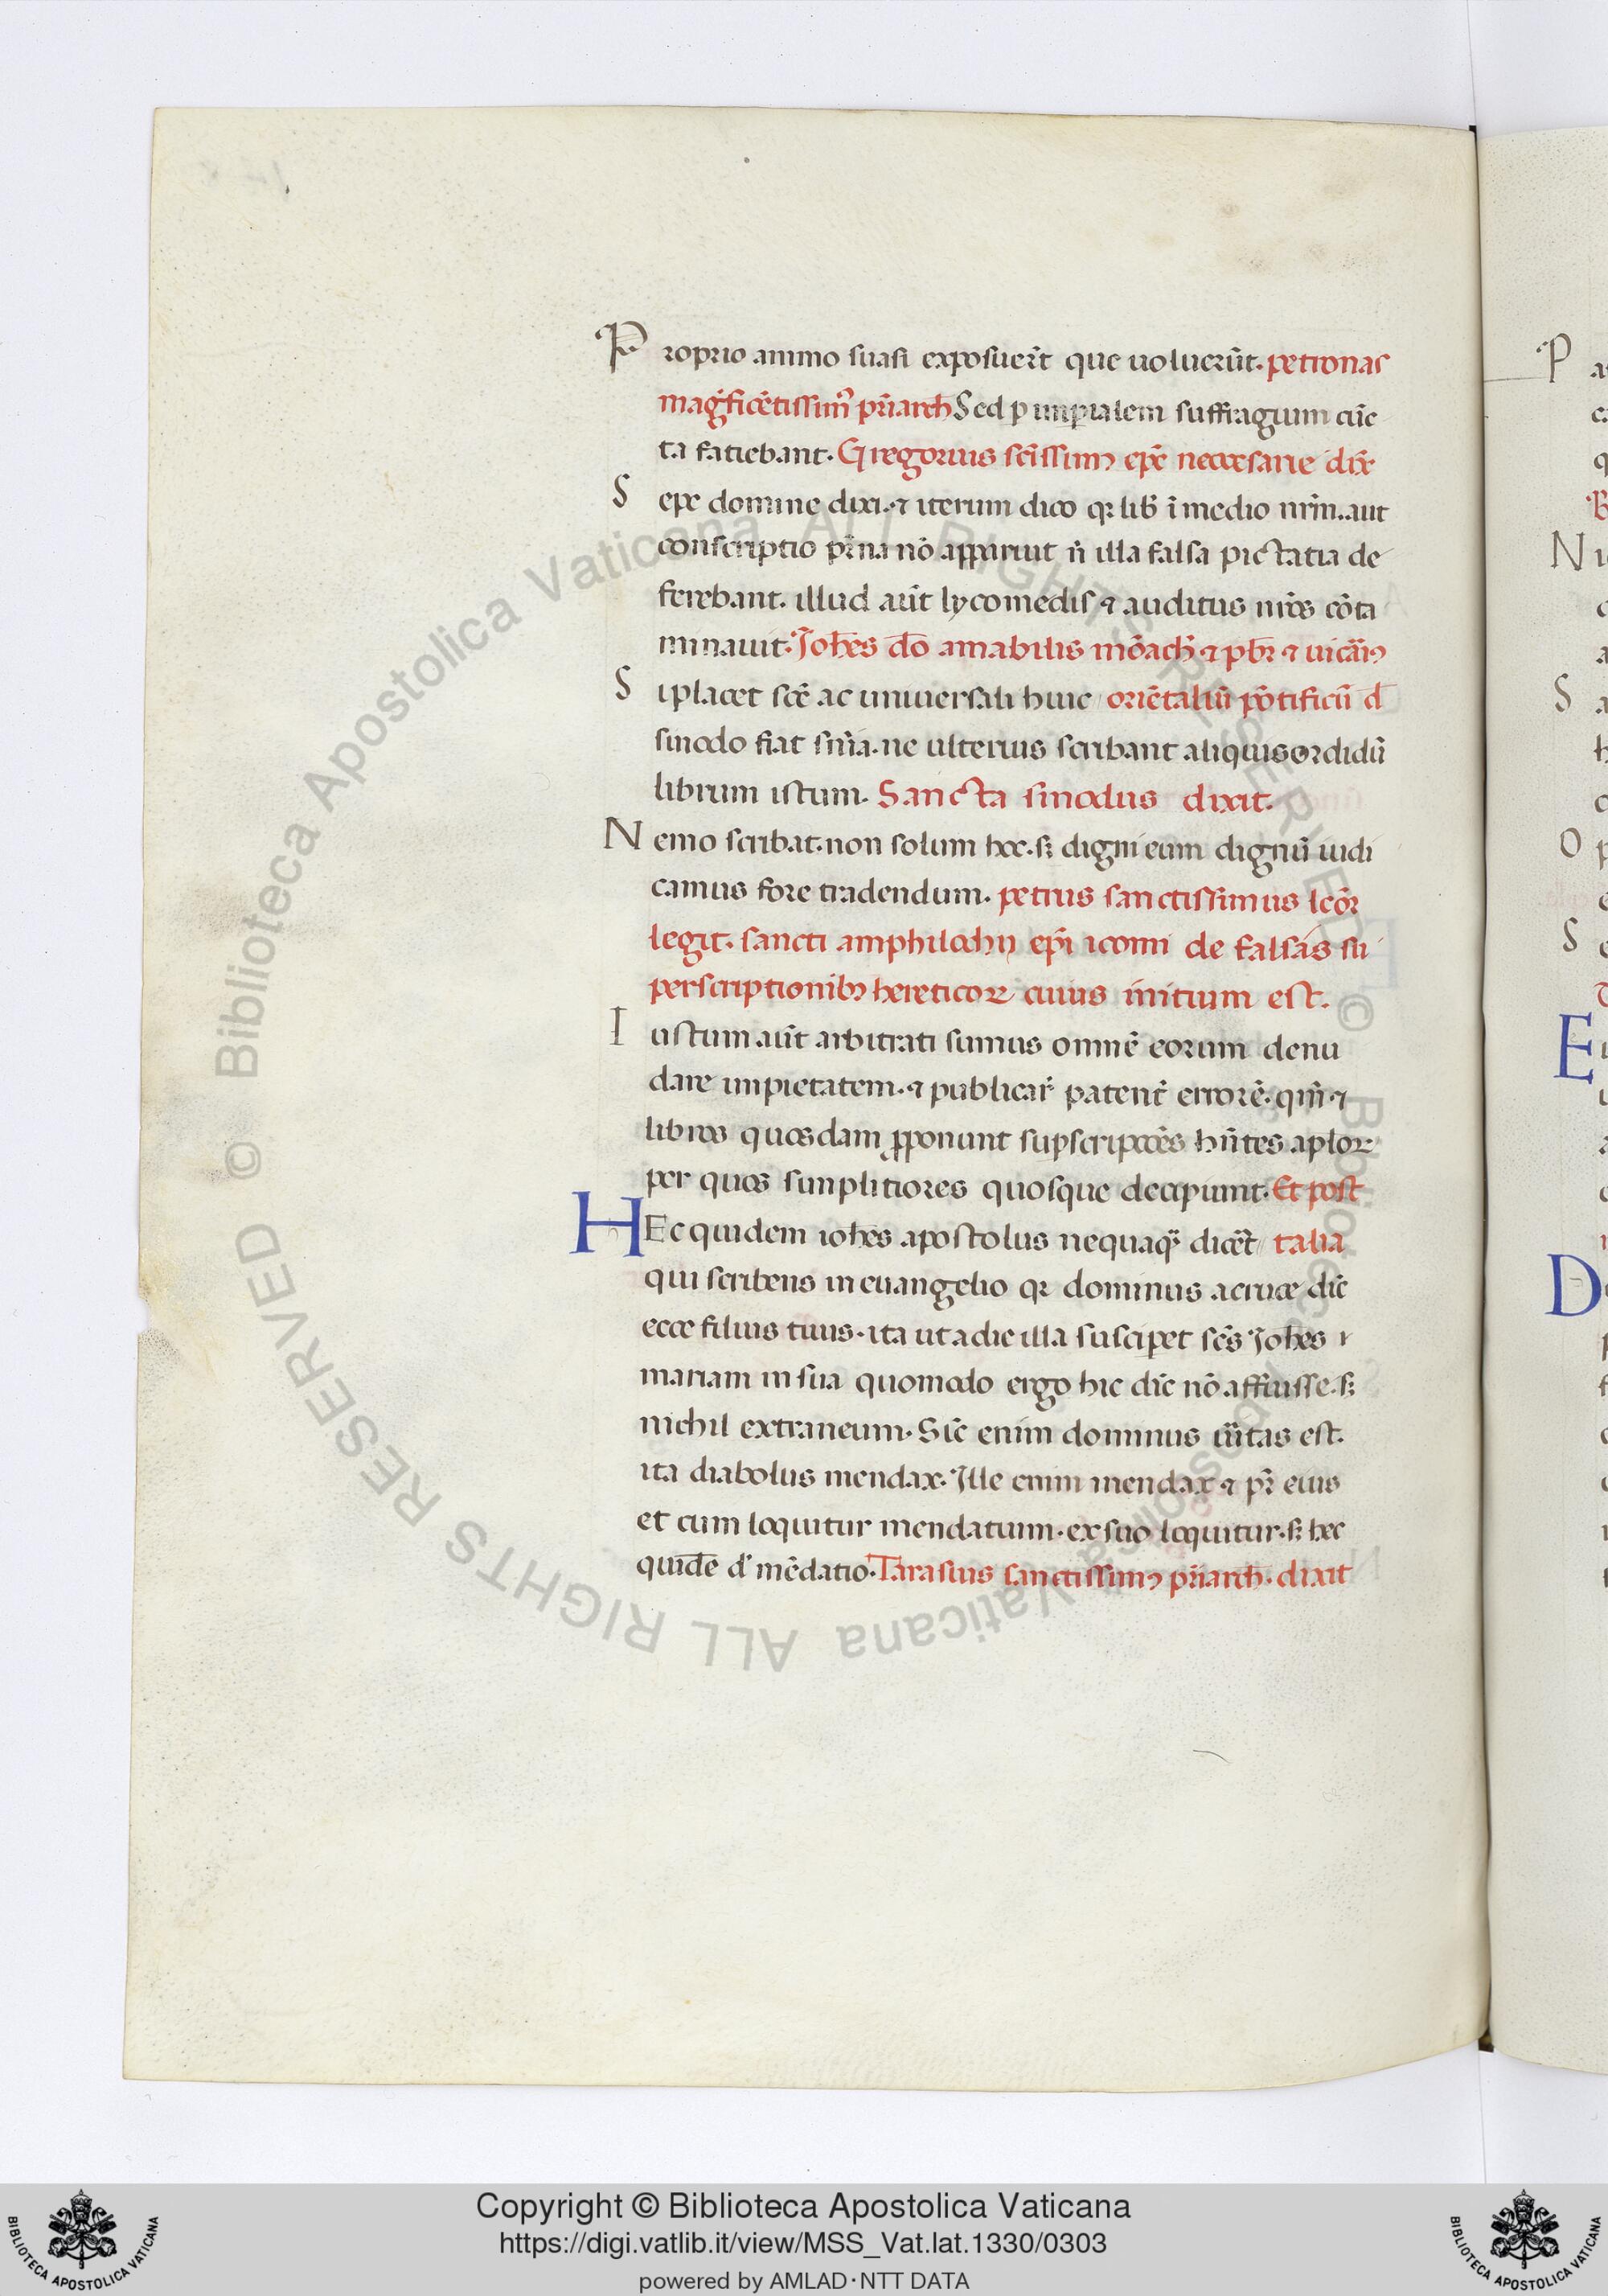 Proprio animo suasi exposuer̄t que uoluerūt. petronas
mag̅ficētissim̄ pr̄iarch̄ Sed ꝑ imꝑialem suffragium cūc
ta fatiebant. Gregorius sc̄issimꝰ ep̄c neccesarie dix̄
Sepe domine dixi. ⁊ iterum dico qꝛ lib̄ ī medio nr̄m. aut
conscriptio pr̄na nō apparuit n̄ illa falsa pictatia de
ferebant. illud aūt lycomedis ⁊ auditus nr̄os cōta
minauit. Joh̄es dō amabilis mōach̄ ⁊ pb̄r ⁊ uicāiꝰ
Si placet sc̄e ac uniuersali huic oriētaliū pōtificū d̄
sinodo fiat sn̄ia. ne ulterius scribant aliqui sordidū
librum istum. Sancta sinodus dixit.
Nemo scribat. non solum hoc. sꝫ digni eum dignū iudi
camus fore tradendum. petrus sanctissimus lcōr
legit. sancti amphilochii ep̄i iconii de falsas su
perscriptionibꝰ hereticoꝝ cuius initium est.
Iustum aūt arbitrati sumus omnē eorum denu
dare impietatem. ⁊ publicar̄ patent̄ errorē. qm̄ ⁊
libros quosdam ꝓponunt suꝑscripcōes hn̄tes aploꝝ
per quos simplitiores quosque decipiunt. Et post
HEc quidem ioh̄es apostolus nequaq̄ dicēt talia
qui scribens in euangelio qꝛ dominus a cruce dic̄
ecce filius tuus. ita ut a die illa susciꝑet sc̄s Joh̄es
mariam in sua quomodo ergo hic dic̄ nō affuisse. sꝫ
nichil extraneum. Sic̄ enim dominus ūitas est.
ita diabolus mendax. Ille enim mendax ⁊ pr̄ eius
et cum loquitur mendatium. ex suo loquitur. sꝫ hec
quidē d̄ mēdatio. Tarasius sanctissimꝰ pr̄iarch̄. dixit
Copyright © Biblioteca Apostolica Vaticana
https://digi.vatlib.it/view/MSS_Vat.lat.1330/0303
powered by AMLAD·NTT DATA
BIBLIOTECA APOSTOLICA VATICANA
BIBLIOTECA APOSTOLICA VATICANA
© Biblioteca Apostolica Vaticana ALL RIGHTS RESERVED
© Biblioteca Apostolica Vaticana ALL RIGHTS RESERVED